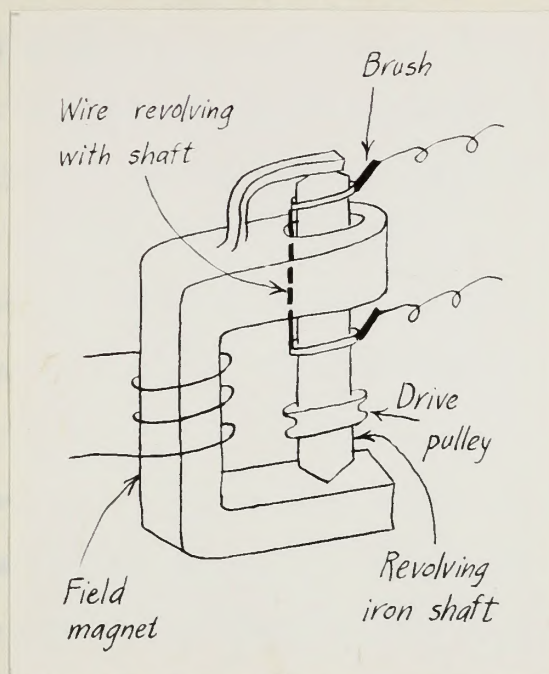 Brush
Wire revolving
with shaft
Drive
pulley
Revolving
iron shaft
Field
magnet